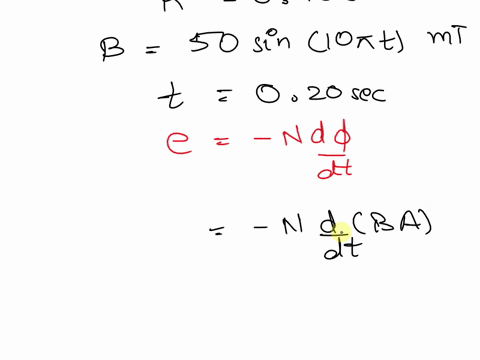 B = 50 sin (10πt) mT
t = 0.20 sec
e = -N dϕ/dt
= -N d/dt (BA)